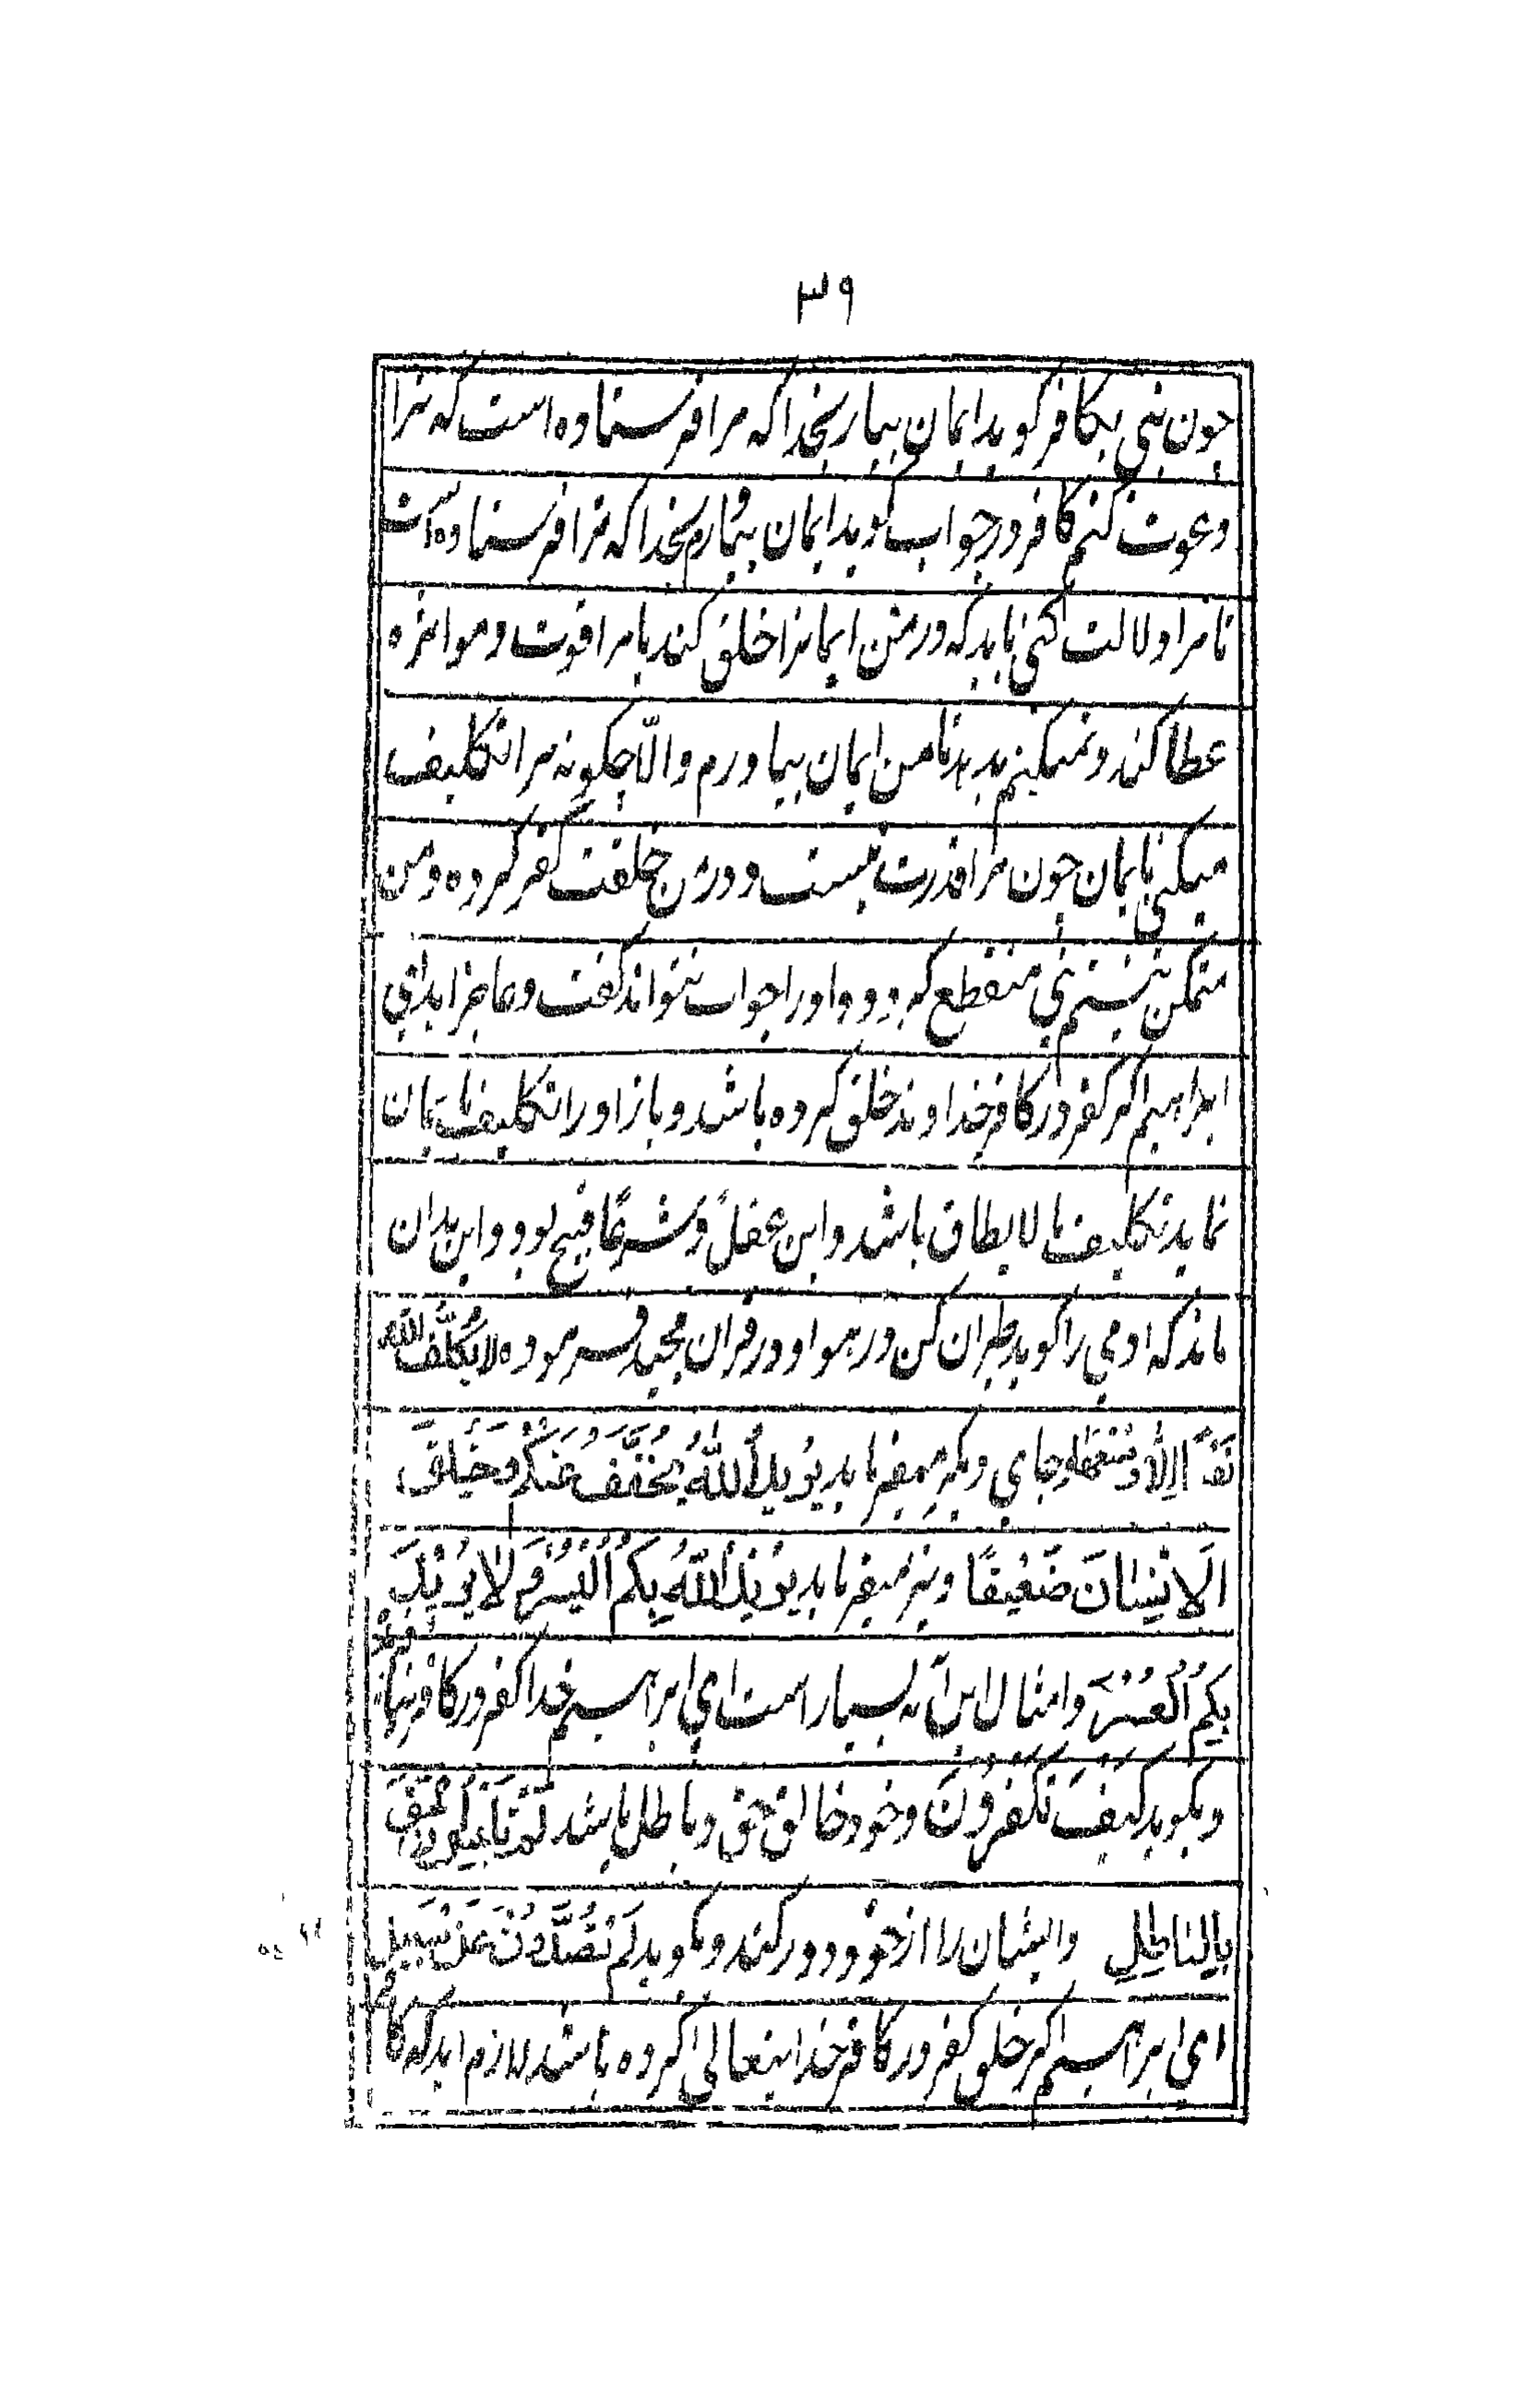 ۳۹
چون نبی بکافر گوید ایمان بیار بخدا که مرا فرستاده است که ترا
دعوت کنم کافر در جواب گوید ایمان بیارم بخدا که ترا فرستاده است
تا مرا دلالت کنی باید که در من ایمانرا خلق کند یا مرا قوت و
عطا کند و تمکینم بدهد تا من ایمان بیاورم والّا چگونه مرا تکلیف
میکنی بایمان چون مرا قدرت نیست و در من خلقت کفر کرده و من
متمکن نیستم نبی منقطع گردد و اورا جواب نتواند گفت و عاجز آید ای
ابراهیم اگر کفر در کافر خداوند خلق کرده باشد و باز اورا تکلیف بایمان
نماید تکلیف ما لا یطاق باشد و این عقلاً و شرعًا قبیح بود و این بدان
ماند که آدمی را گوید طیران کن در هوا و در قران مجید فرموده لا یُکَلِّفُ اللهُ
نَفْسًا اِلَّا وُسْعَهَا و جای دیگر میفرماید یُرِیدُ اللّٰهُ اَنْ یُخَفِّفَ عَنْکُمْ وَخُلِقَ
الْاِنْسَانُ ضَعِیفًا و نیز میفرماید یُرِیدُ اللّٰهُ بِکُمُ الْیُسْرَ وَلَا یُرِیدُ
بِکُمُ الْعُسْرَ و امثال این آیه بسیار است ای ابراهیم خدا کفر در کافر
و بگوید کَیْفَ تَکْفُرُونَ و خود خالق حق و باطل باشد لِمَ تَلْبِسُونَ الْحَقَّ
بِالْبَاطِلِ و ایشان را از خود دور کند و گوید لِمَ تَصُدُّونَ عَنْ سَبِیلِ
ای ابراهیم اگر خلق کفر در کافر خدایتعالی کرده باشد لازم آید که کافر